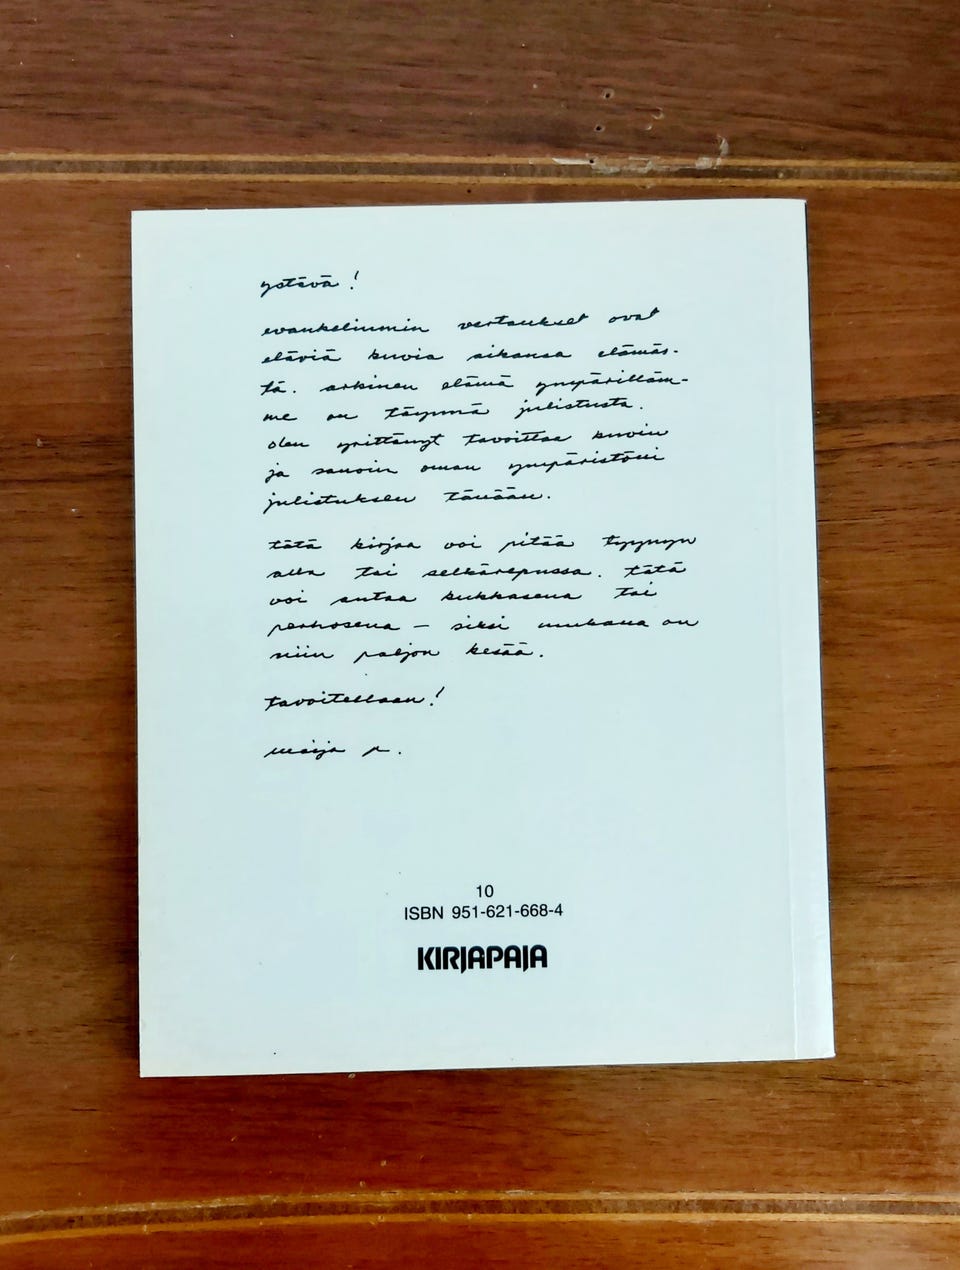 ystävä!
evankeliumin vertaukset ovat
eläviä kuvia aikansa elämäs-
tä. arkinen elämä ympärilläm-
me on täynnä julistusta.
olen yrittänyt tavoittaa kuvin
ja sanoin oman ympäristöni
julistuksen tänään.
tätä kirjaa voi pitää tyynyn
alla tai selkärepussa. tätä
voi antaa kukkasena tai
perhosena – siksi mukana on
niin paljon kesää.
tavoitellaan!
maija p.
10
ISBN 951-621-668-4
KIRJAPAJA